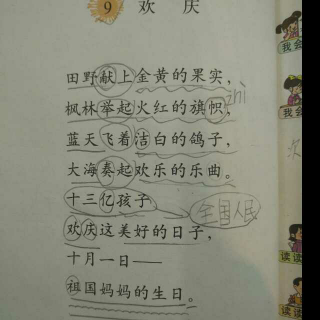 9 欢庆
田野献上金黄的果实，
枫林举起火红的旗帜，
zhì
蓝天飞着洁白的鸽子，
大海奏起欢乐的乐曲。
十三亿孩子
全国人民
欢庆这美好的日子，
十月一日——
祖国妈妈的生日。
我会
我会
读读
读读